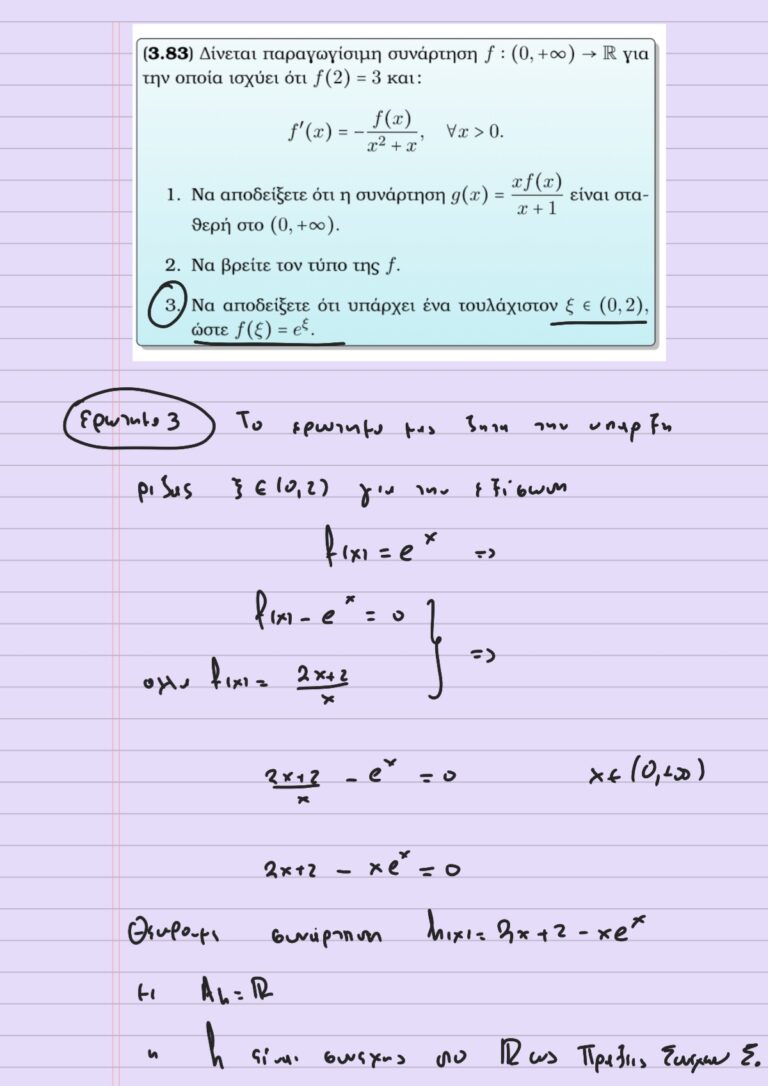 (3.83) Δίνεται παραγωγίσιμη συνάρτηση f : (0, +∞) → ℝ για
την οποία ισχύει ότι f(2) = 3 και:
f′(x) = −f(x)/(x² + x), ∀x > 0.
1. Να αποδείξετε ότι η συνάρτηση g(x) = xf(x)/(x + 1) είναι στα-
θερή στο (0, +∞).
2. Να βρείτε τον τύπο της f.
3. Να αποδείξετε ότι υπάρχει ένα τουλάχιστον ξ ∈ (0, 2),
ώστε f(ξ) = e^ξ.
Ερωτημα 3 Το ερωτημα μας ζητα την υπαρξη
ριζας ξ ∈ (0,2) για την εξίσωση
f(x) = e^x =>
f(x) - e^x = 0
f(x) = (2x+2)/x =>
(2x+2)/x - e^x = 0 x ∈ (0,+∞)
2x+2 - xe^x = 0
Θεωρουμε συνάρτηση h(x) = 2x+2 - xe^x
με A_h = ℝ
η h είναι συνεχης στο ℝ ως Πραξεις Συνεχων Σ.